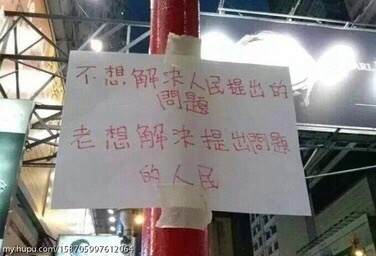 不想解決人民提出的
問題
老想解決提出問題
的人民
my.hupu.com/158705997612064